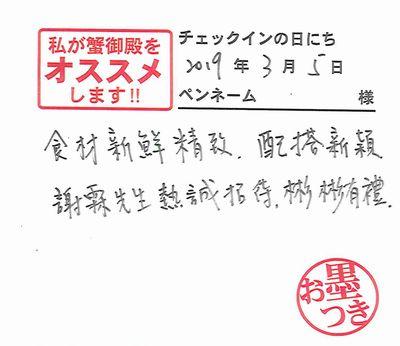 私が蟹御殿を
オススメ
します!!
チェックインの日にち
2019 年 3 月 5 日
ペンネーム 様
食材新鮮精致、配搭新穎
謝霖先生熱誠招待,彬彬有禮.
お墨
つき